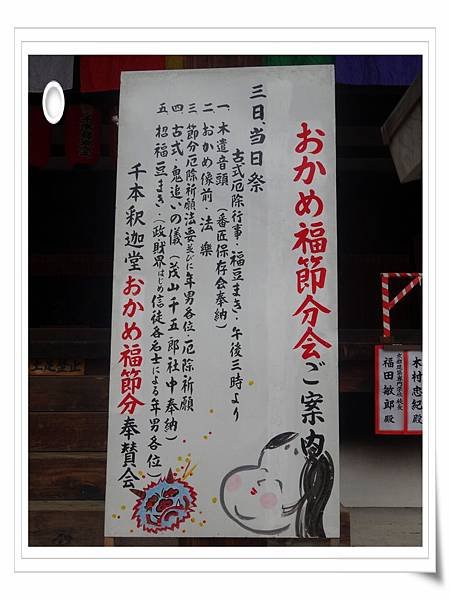 おかめ福節分会ご案内
三日、当日祭
古式厄除行事・福豆まき・午後三時より
一、木遣音頭（番匠保存会奉納）
二、おかめ像前・法樂
三、節分厄除祈願法要並びに年男各位・厄除祈願
四、古式・鬼追いの儀（茂山千五郎社中奉納）
五、招福豆まき・（政財界はじめ信徒各名士による年男各位）
千本釈迦堂おかめ福節分奉賛会
木村忠紀殿
京都建築専門学校 校長
福田敏郎殿
土足禁止